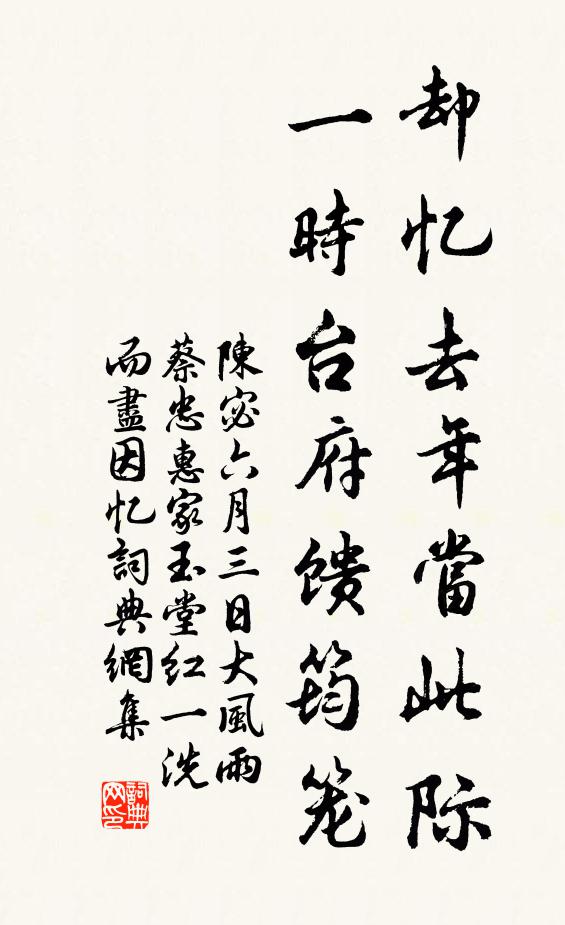 却忆去年當此际
一時台府馈筠笼
陳宓六月三日大風雨
蔡忠惠家玉堂红一洗
而盡因忆詞典網集
詞典
网印